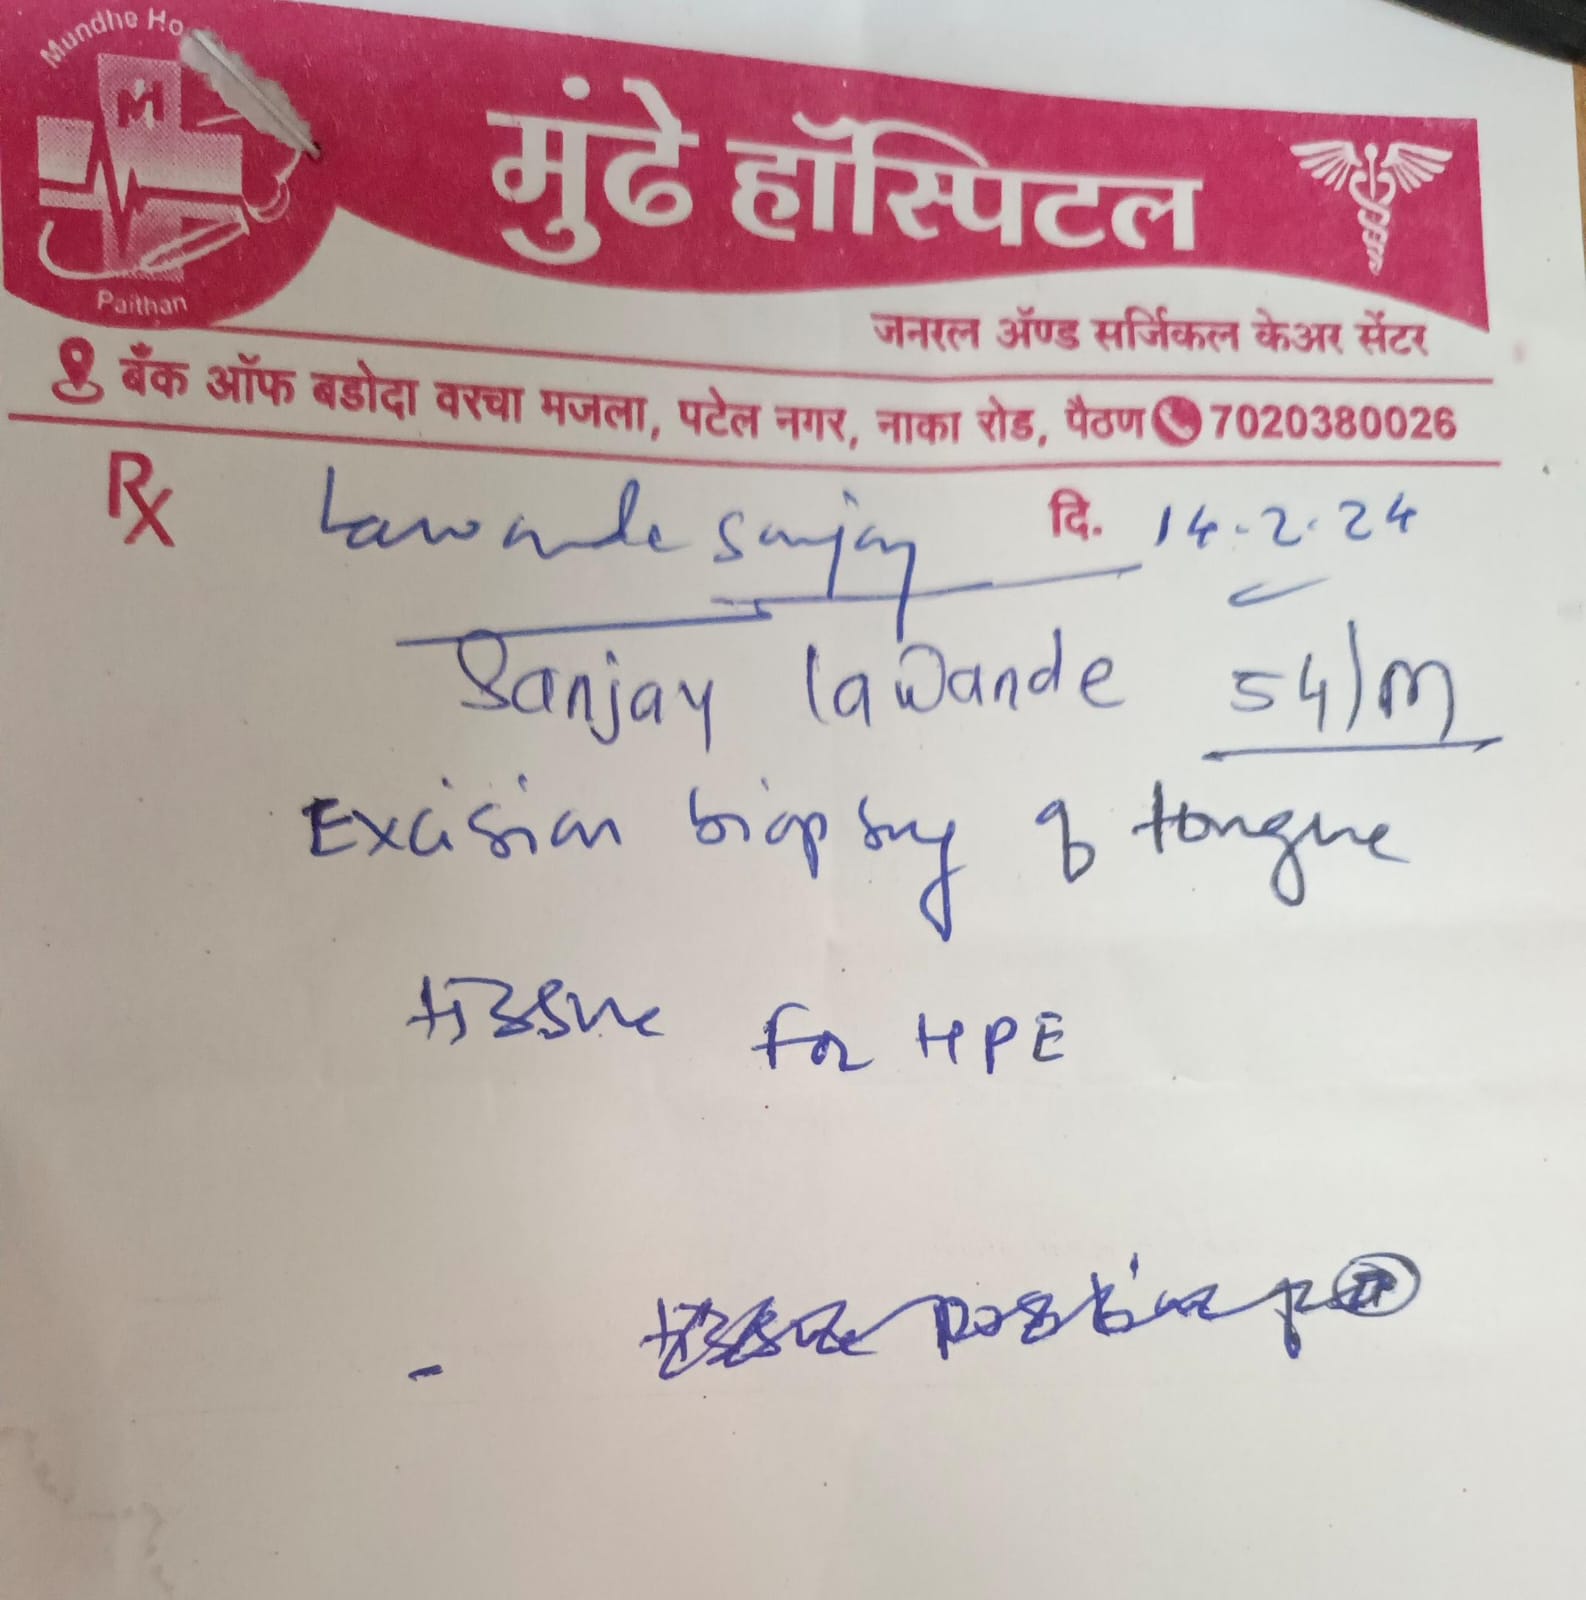 Mundhe Ho
M
Paithan
मुंढे हॉस्पिटल
जनरल ॲण्ड सर्जिकल केअर सेंटर
बँक ऑफ बडोदा वरचा मजला, पटेल नगर, नाका रोड, पैठण 7020380026
Rx Lawande Sanjay दि. 14-2-24
Sanjay lawande 54/m
Excision biopsy of tongue
tissue for HPE